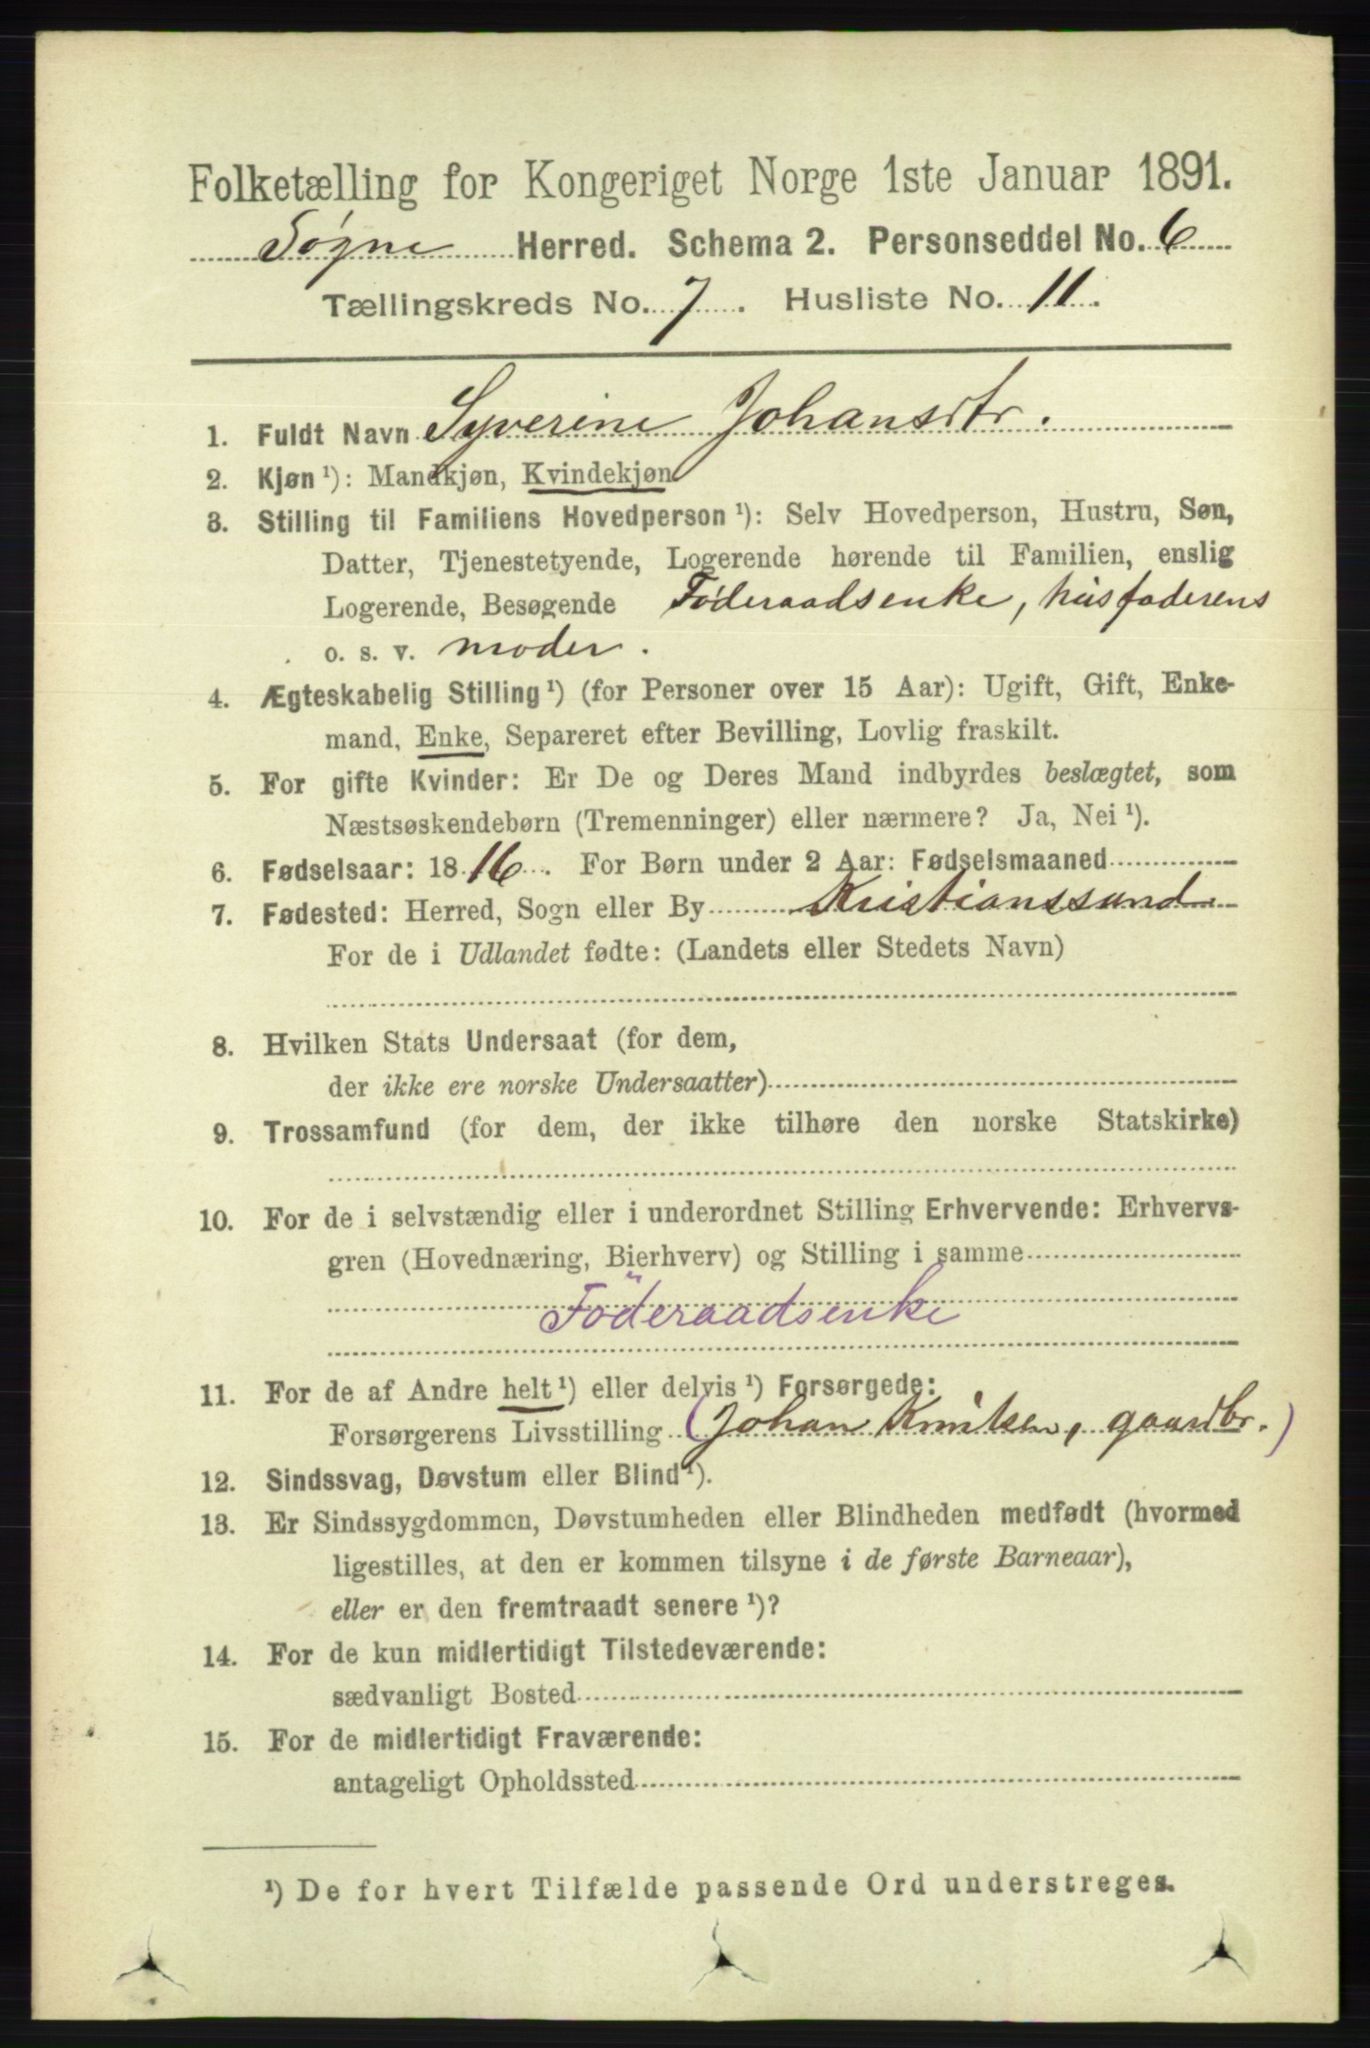 Folketælling for Kongeriget Norge 1ste Januar 1891.
Søgne Herred. Schema 2. Personseddel No. 6
Tællingskreds No. 7. Husliste No. 11.
1. Fuldt Navn Syverine Johansdtr.
2. Kjøn ¹): Mandkjøn, Kvindekjøn.
3. Stilling til Familiens Hovedperson ¹): Selv Hovedperson, Hustru, Søn,
Datter, Tjenestetyende, Logerende hørende til Familien, enslig
Logerende, Besøgende Föderaadsenke, husfaderens
o. s. v. moder.
4. Ægteskabelig Stilling ¹) (for Personer over 15 Aar): Ugift, Gift, Enke-
mand, Enke, Separeret efter Bevilling, Lovlig fraskilt.
5. For gifte Kvinder: Er De og Deres Mand indbyrdes beslægtet, som
Næstsøskendebørn (Tremenninger) eller nærmere? Ja, Nei ¹).
6. Fødselsaar: 1816. For Børn under 2 Aar: Fødselsmaaned
7. Fødested: Herred, Sogn eller By Kristianssund
For de i Udlandet fødte: (Landets eller Stedets Navn)
8. Hvilken Stats Undersaat (for dem,
der ikke ere norske Undersaatter)
9. Trossamfund (for dem, der ikke tilhøre den norske Statskirke)
10. For de i selvstændig eller i underordnet Stilling Erhvervende: Erhvervs-
gren (Hovednæring, Bierhverv) og Stilling i samme
Föderaadsenke
11. For de af Andre helt ¹) eller delvis ¹) Forsørgede:
Forsørgerens Livsstilling (Johan Knutsen, gaardbr.)
12. Sindssvag, Døvstum eller Blind ¹).
13. Er Sindssygdommen, Døvstumheden eller Blindheden medfødt (hvormed
ligestilles, at den er kommen tilsyne i de første Barneaar),
eller er den fremtraadt senere ¹)?
14. For de kun midlertidigt Tilstedeværende:
sædvanligt Bosted
15. For de midlertidigt Fraværende:
antageligt Opholdssted
¹) De for hvert Tilfælde passende Ord understreges.